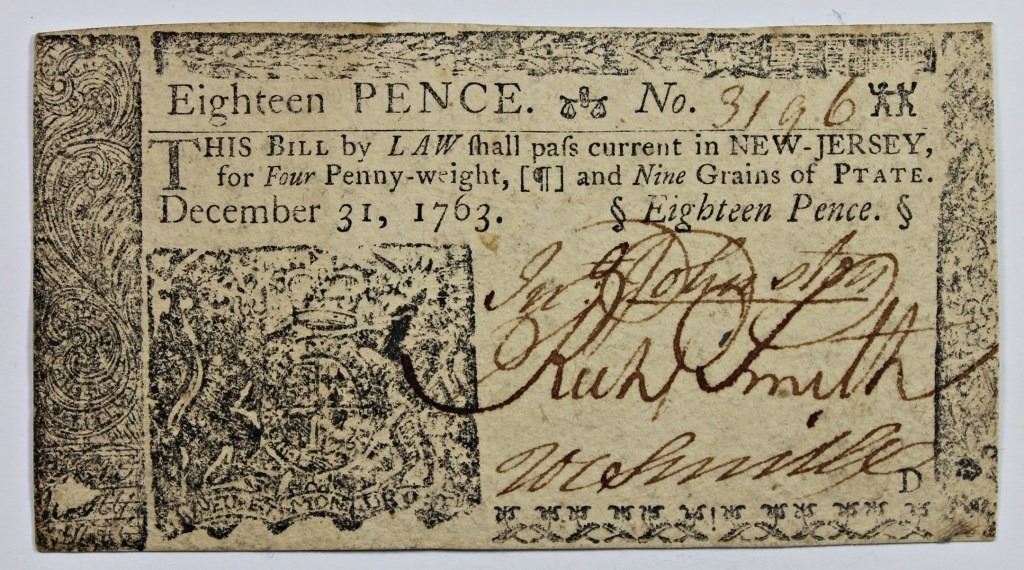 Eighteen PENCE. No. 3196
THIS BILL by LAW ſhall paſs current in NEW-JERSEY,
for Four Penny-weight, [¶] and Nine Grains of PTATE.
December 31, 1763. § Eighteen Pence. §
Jno. Johnston
Rich Smith
D